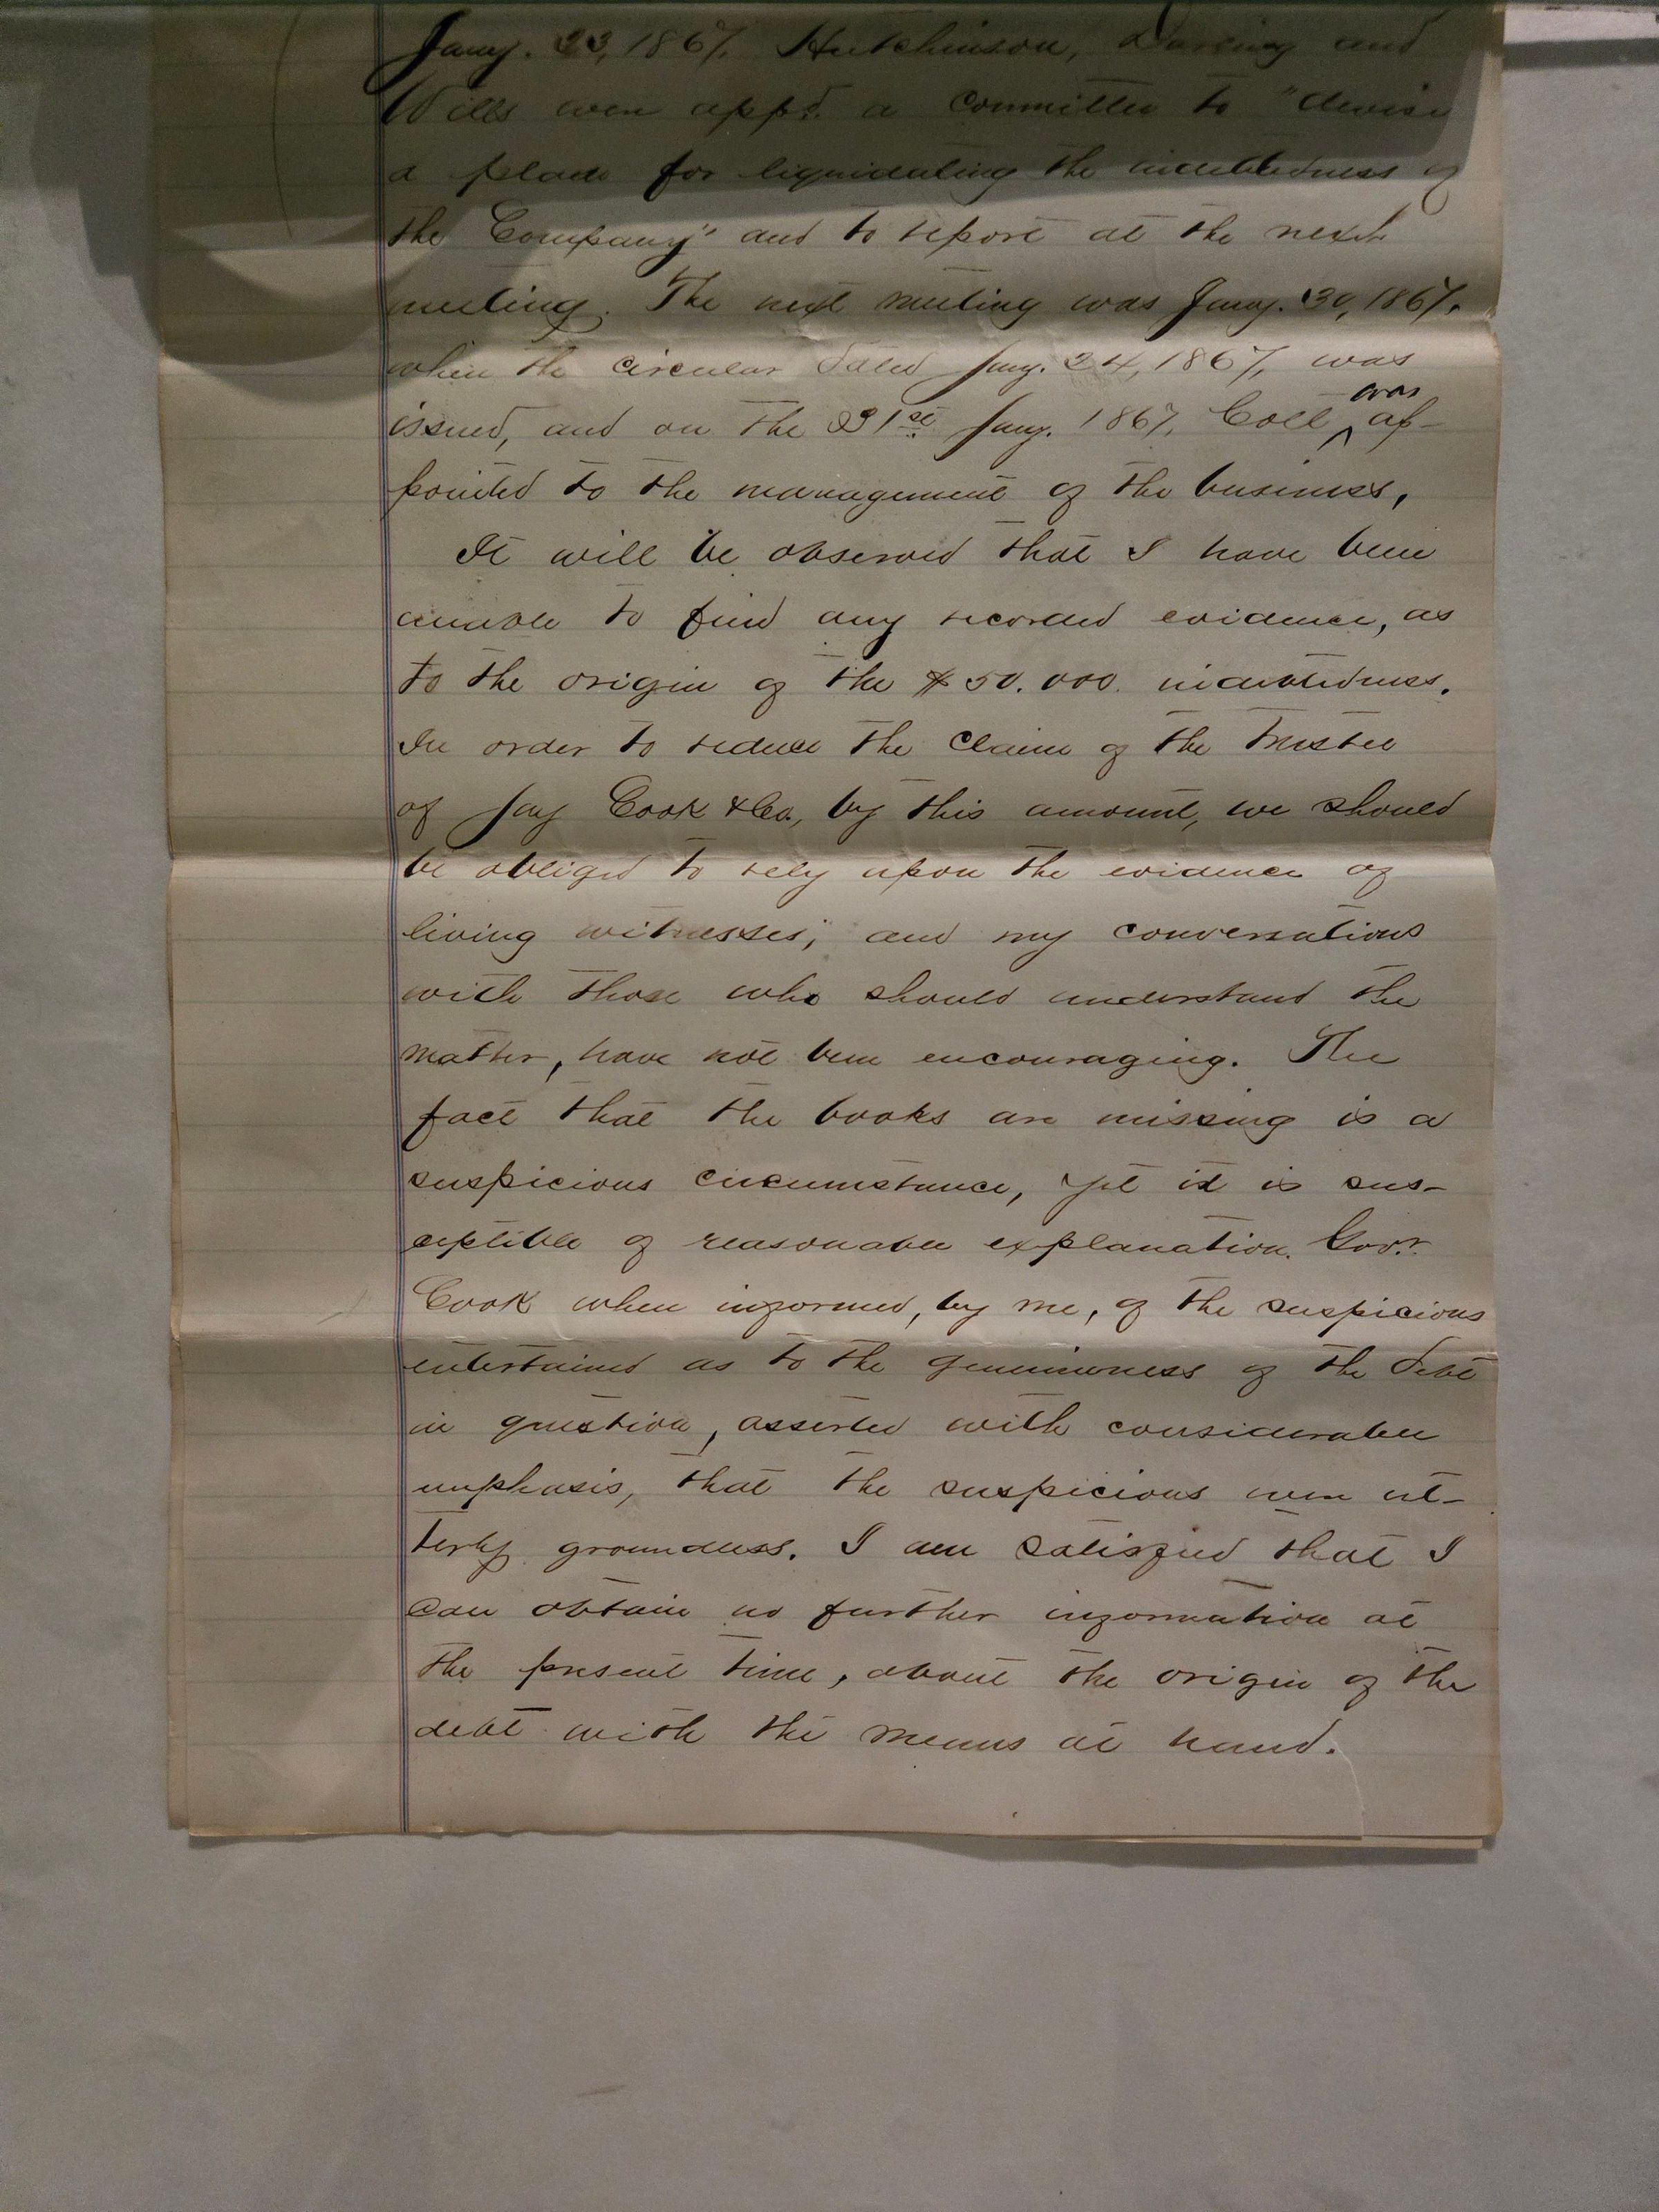 Jany. 23, 1867, Hutchinson, and
Wills were appd. a Committee to "devise
a plan for liquidating the indebtedness of
the Company" and to report at the next
meeting. The next meeting was Jany. 30, 1867,
when the circular dated Jany. 24, 1867, was
issued, and on the 31st Jany. 1867, Coll was ap-
pointed to the management of the business,
It will be observed that I have been
unable to find any recorded evidence, as
to the origin of the $50.000. indebtedness.
In order to reduce the claim of the Trustee
of Jay Cook & Co., by this amount, we should
be obliged to rely upon the evidence of
living witnesses; and my conversations
with those who should understand the
matter, have not been encouraging. The
fact that the books are missing is a
suspicious circumstance, yet it is sus-
ceptible of reasonable explanation. Govr.
Cook when informed, by me, of the suspicions
entertained as to the genuineness of the debt
in question, asserted with considerable
emphasis, that the suspicions were ut-
terly groundless. I am satisfied that I
can obtain no further information at
the present time, about the origin of the
debt with the means at hand.